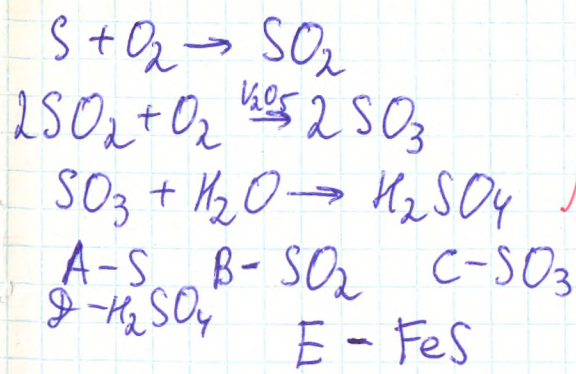 S + O₂ → SO₂
2SO₂ + O₂ V₂O₅→ 2SO₃
SO₃ + H₂O → H₂SO₄
A - S B - SO₂ C - SO₃
D - H₂SO₄
E - FeS